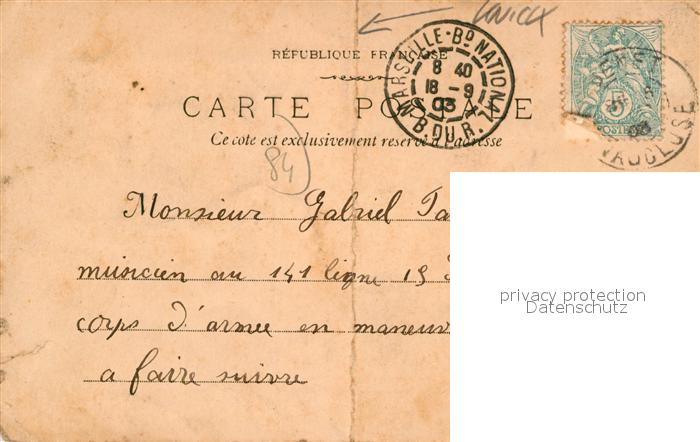 RÉPUBLIQUE FRANÇAISE
CARTE POSTALE
Ce côté est exclusivement réservé à l'adresse
MARSEILLE-Bᴰ NATIONAL
8 40
18 - 9
03
B. DU R.
VAUCLUSE
84
Monsieur Gabriel
musicien au 141 ligne 15
corps d'armée en
a faire suivre
privacy protection
Datenschutz